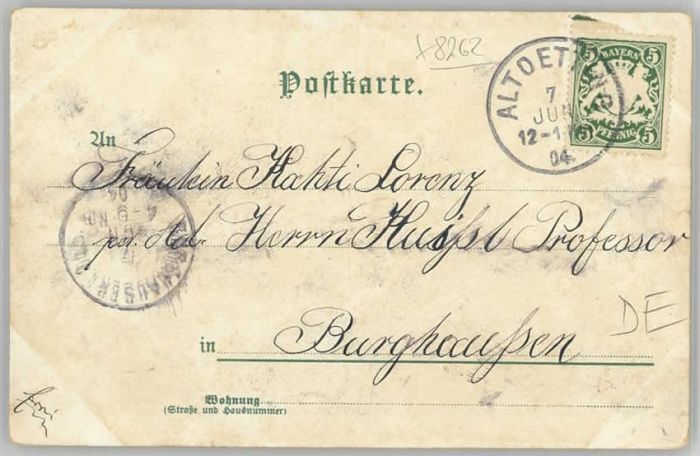 +8262
BAYERN
5 5
5 PFENNIG 5
ALTOET
7
JUN
12-1
04.
Postkarte.
An
Fräulein Kathi Lorenz
per Adr. Herrn Professor
BURGHAUSEN
4-6 N
04
in Burghaußen
DE
Wohnung
(Straße und Hausnummer)